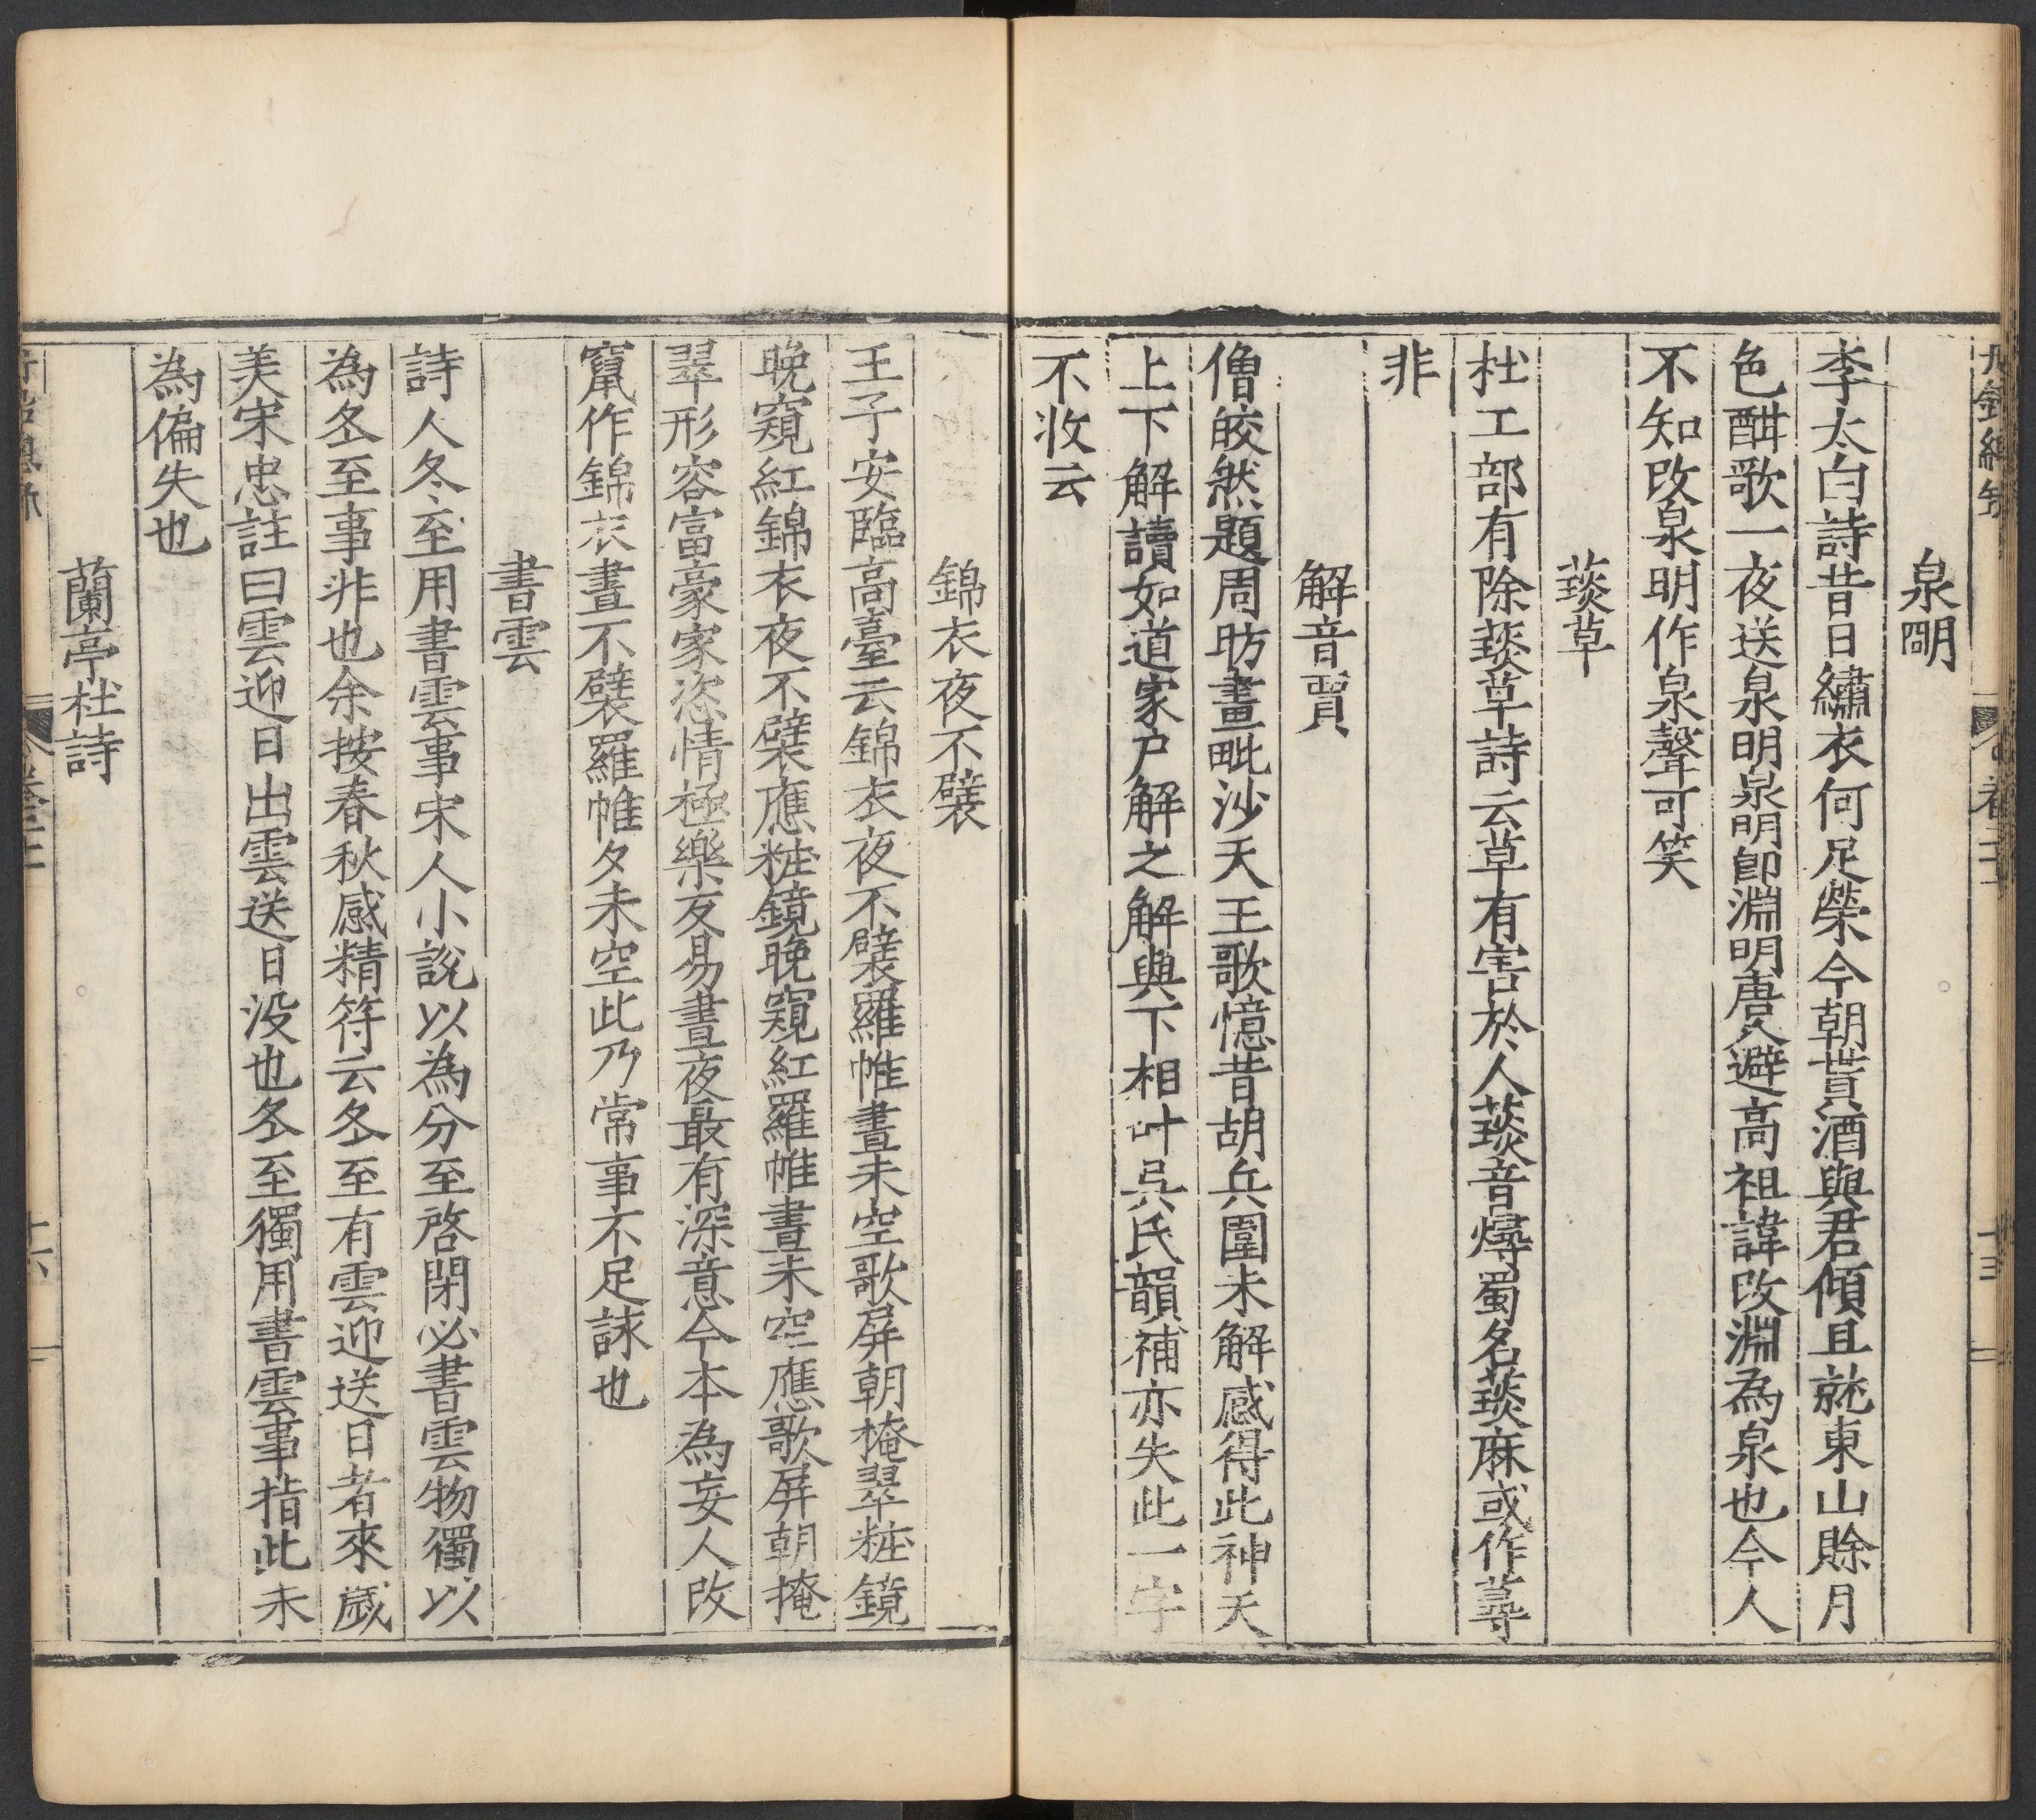 泉明
李太白詩昔日繡衣何足榮今朝貰酒與君傾且就東山賒月
色酣歌一夜送泉明泉明卽淵明唐人避高祖諱改淵為泉也今人
不知改泉明作泉聲可笑
䕭草
杜工部有除䕭草詩云草有害於人䕭音燖蜀名䕭麻或作蕁
非
解音賈
僧皎然題周昉畫毗沙天王歌憶昔胡兵圍未解感得此神天
上下解讀如道家尸解之解與下相叶吳氏韻補亦失此一字
不收云
錦衣夜不襞
王子安臨高臺云錦衣夜不襞羅帷晝未空歌屏朝掩翠粧鏡
晚窺紅錦衣夜不襞應粧鏡晚窺紅羅帷晝未空應歌屏朝掩
翠形容富豪家恣情極樂反易晝夜最有深意今本為妄人改
竄作錦衣晝不襞羅帷夕未空此乃常事不足詠也
書雲
詩人冬至用書雲事宋人小說以為分至啓閉必書雲物獨以
為冬至事非也余按春秋感精符云冬至有雲迎送日者來歲
美宋忠註曰雲迎日出雲送日没也冬至獨用書雲事指此未
為偏失也
蘭亭杜詩
卷三
十六